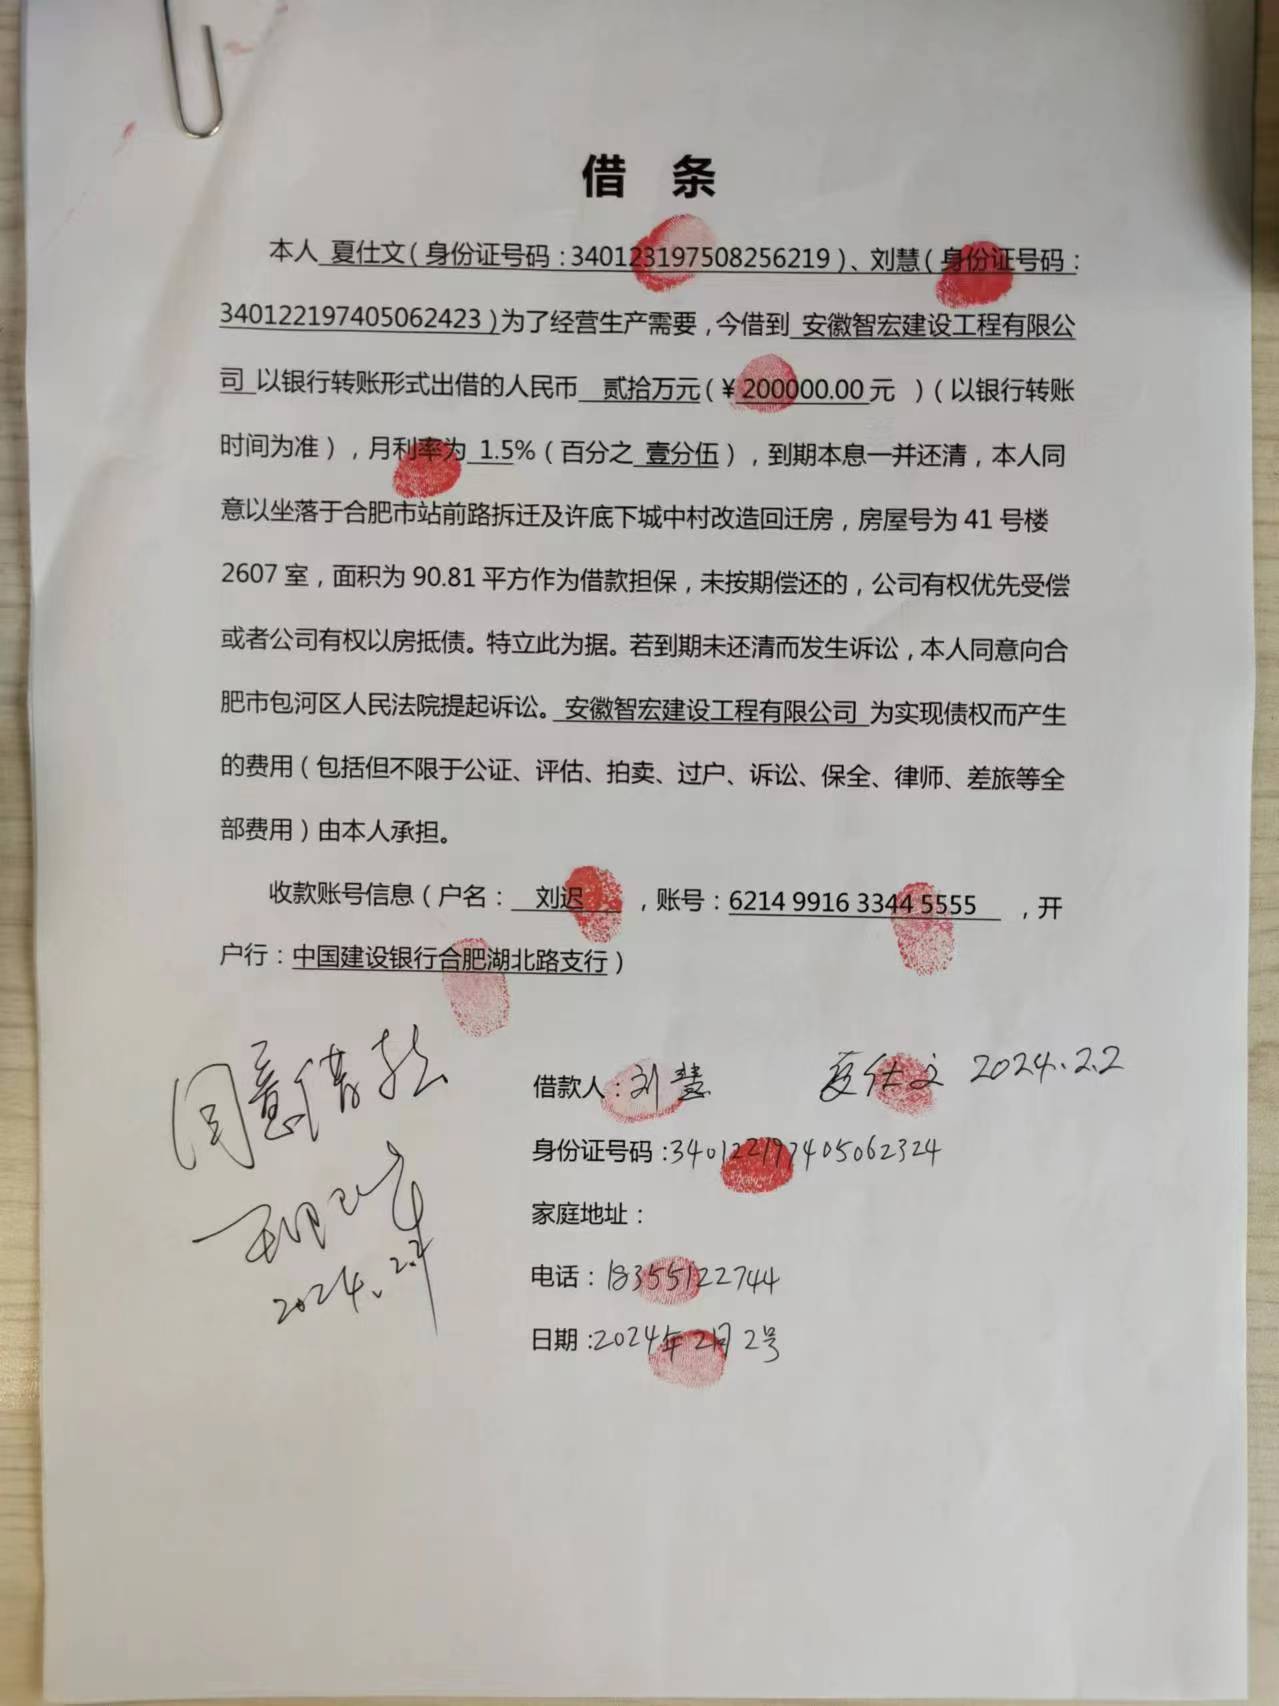 借 条
本人 夏仕文(身份证号码:340123197508256219)、刘慧(身份证号码:
340122197405062423)为了经营生产需要,今借到 安徽智宏建设工程有限公
司 以银行转账形式出借的人民币 贰拾万元(¥200000.00元 )(以银行转账
时间为准),月利率为 1.5%(百分之 壹分伍),到期本息一并还清,本人同
意以坐落于合肥市站前路拆迁及许底下城中村改造回迁房,房屋号为 41 号楼
2607 室,面积为 90.81 平方作为借款担保,未按期偿还的,公司有权优先受偿
或者公司有权以房抵债。特立此为据。若到期未还清而发生诉讼,本人同意向合
肥市包河区人民法院提起诉讼。 安徽智宏建设工程有限公司 为实现债权而产生
的费用(包括但不限于公证、评估、拍卖、过户、诉讼、保全、律师、差旅等全
部费用)由本人承担。
收款账号信息(户名: 刘迟 ,账号:6214 9916 3344 5555 ,开
户行:中国建设银行合肥湖北路支行)
同意借款
2024.2.2
借款人:刘慧 夏仕文 2024.2.2
身份证号码:340122197405062324
家庭地址:
电话:18355122744
日期:2024年2月2号